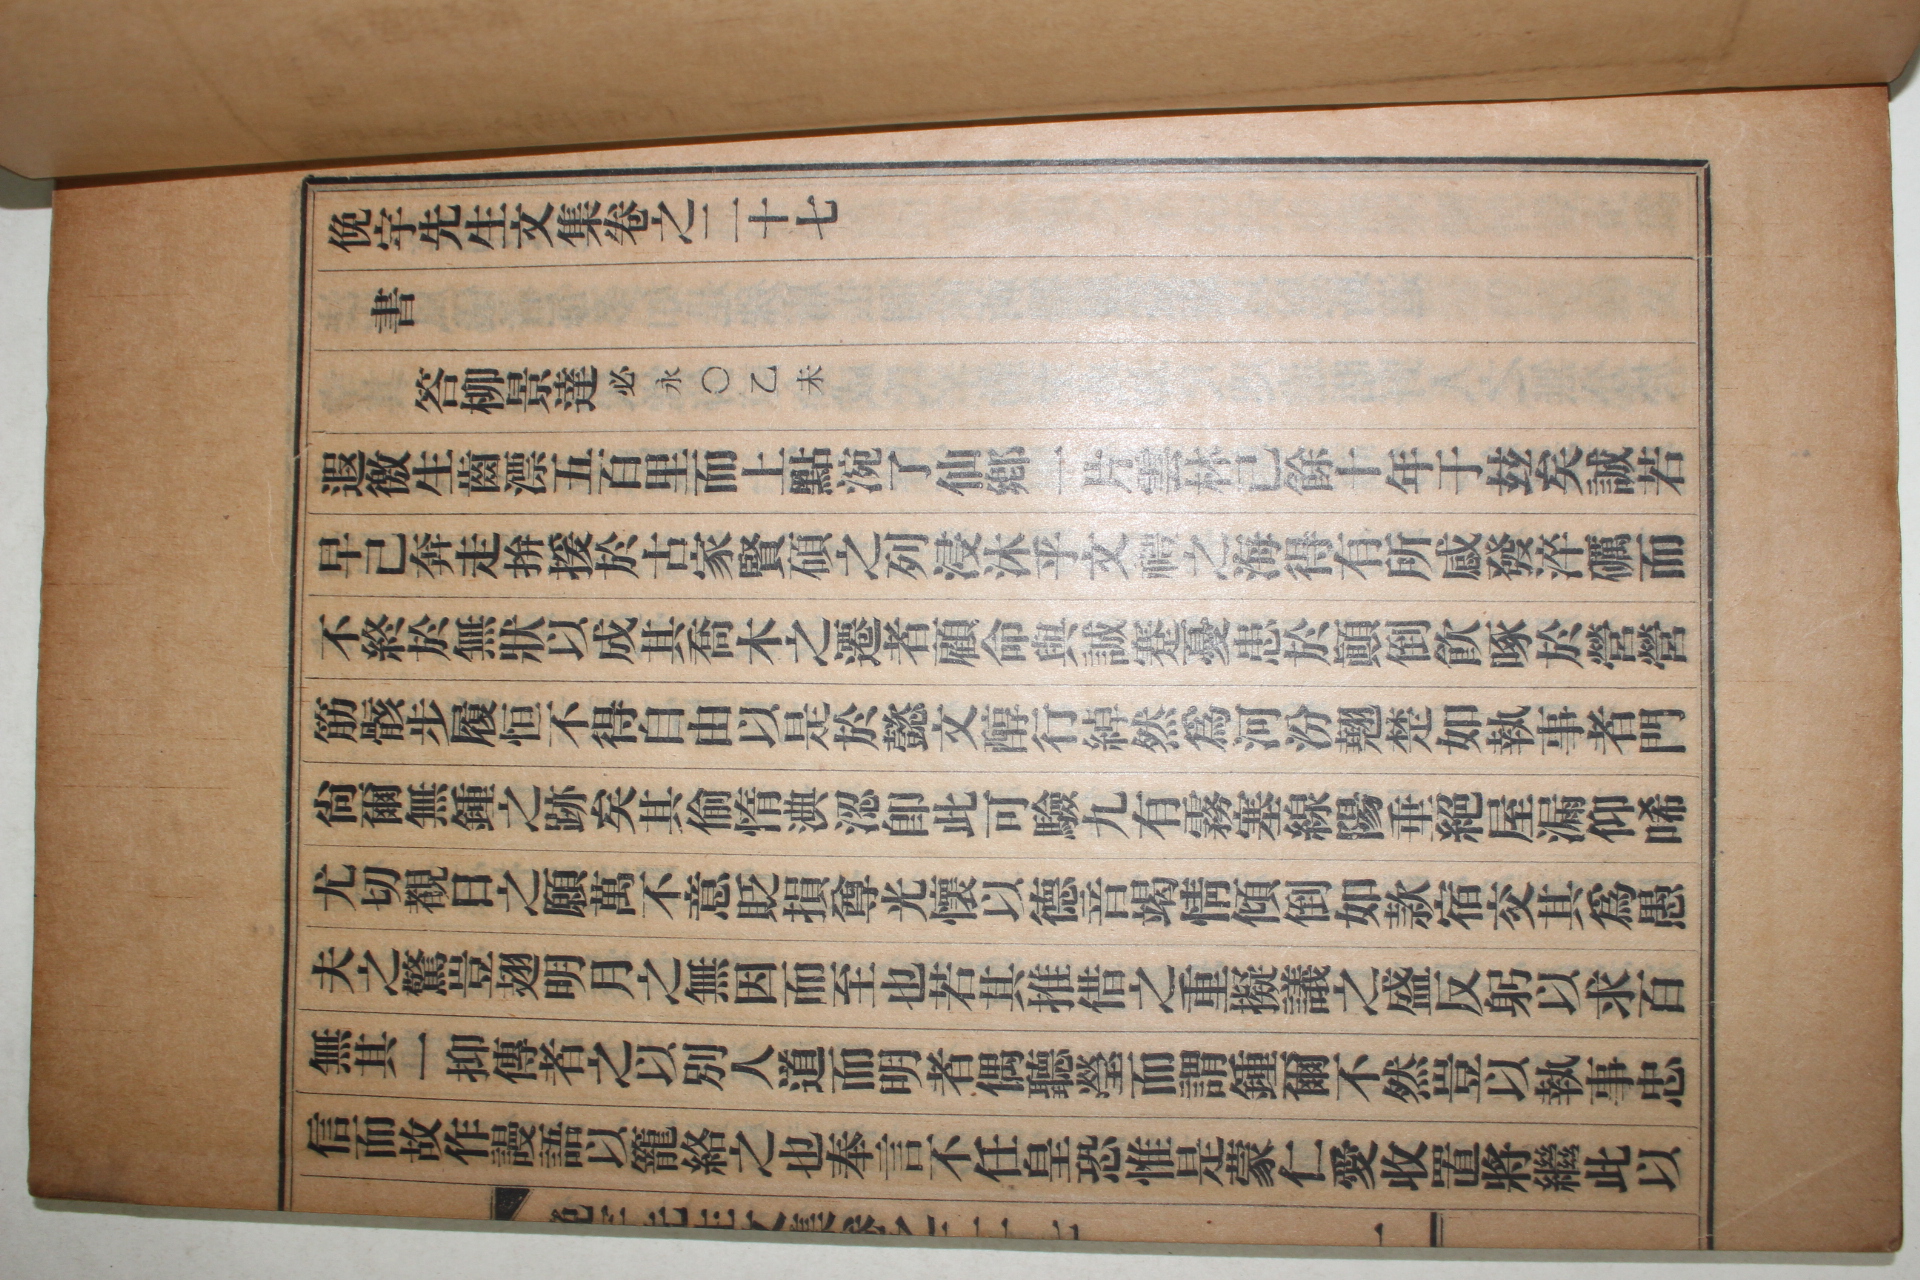 俛宇先生文集卷之二十七
書
答柳景達必永○乙未
遐徼生齒漂五百里而上點涴了仙鄉一片雲林已餘十年于玆矣誠若
早已奔走拚援於古家賢碩之列浸沐乎文禮之海得有所感發淬礪而
不終於無狀以成其喬木之遷者顧命與誠蹇憂患於顚倒飮啄於營營
筋骸步履恒不得自由以是於懿文醇行綽然爲河汾翹楚如執事者門
尙爾無鍾之跡矣其偷惰淟涊卽此可驗九有霧塞線陽垂絕屋漏仰唏
尤切覩日之願萬不意貶損尊光懷以德音竭情傾倒如款宿交其爲愚
夫之驚豈翅明月之無因而至也若其推借之重擬議之盛反躬以求百
無其一抑傳者之以別人道而明者偶聽瑩而謂鍾爾不然豈以執事忠
信而故作謾語以籠絡之也奉言不任皇恐惟是蒙仁愛收置將繼此以
俛宇先生文集卷之二十七
一